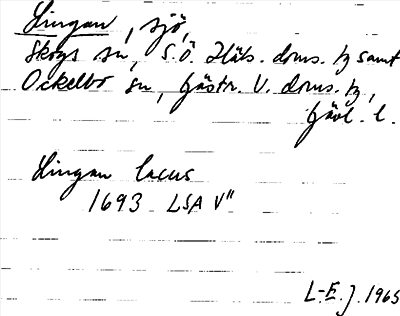 Lingan, sjö,
Skogs sn, S.Ö. Häls. doms. tg samt
Ockelbo sn, Gästr. V. doms. tg,
Gävl. l.
Lingan lacus
1693 LSA V"
L-E. J. 1965